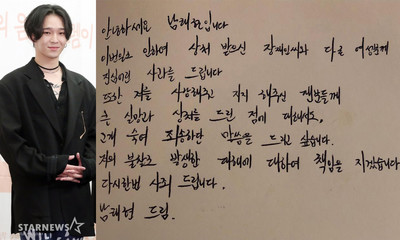 안녕하세요 남태현입니다
이번일로 인하여 상처 받으신 장재인씨와 다른 여성분께
진심어린 사과를 드립니다
또한 저를 사랑해주고 지지 해주신 팬분들께
큰 실망과 상처를 드린 점에 대해서도,
고개 숙여 죄송하단 말씀을 드리고 싶습니다.
저의 불찰로 발생한 피해에 대하여 책임을 지겠습니다
다시한번 사죄 드립니다.
남태현 드림.
STARNEWS